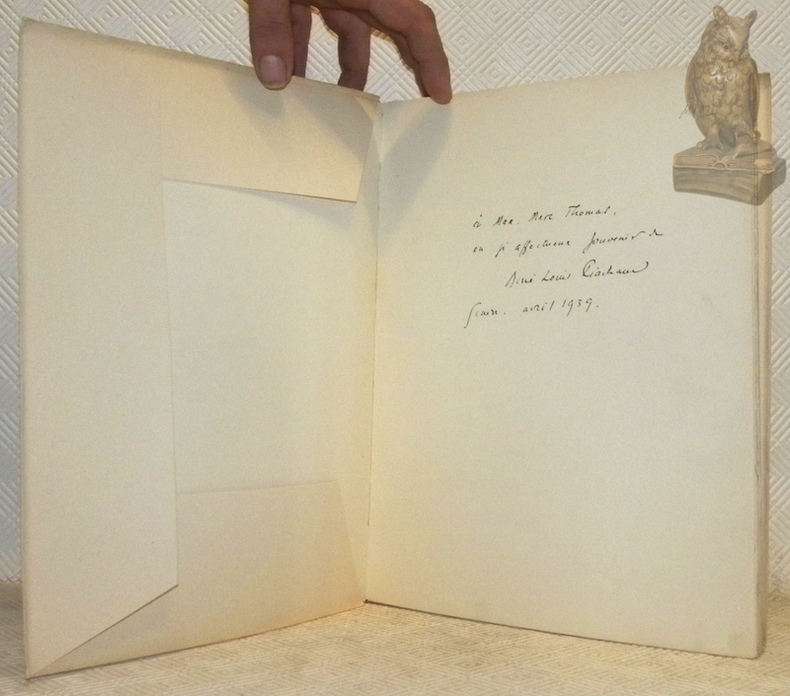 à Mme. Marc Thomas,
en si affectueux souvenir de
René Louis Piachaud
avril 1939.